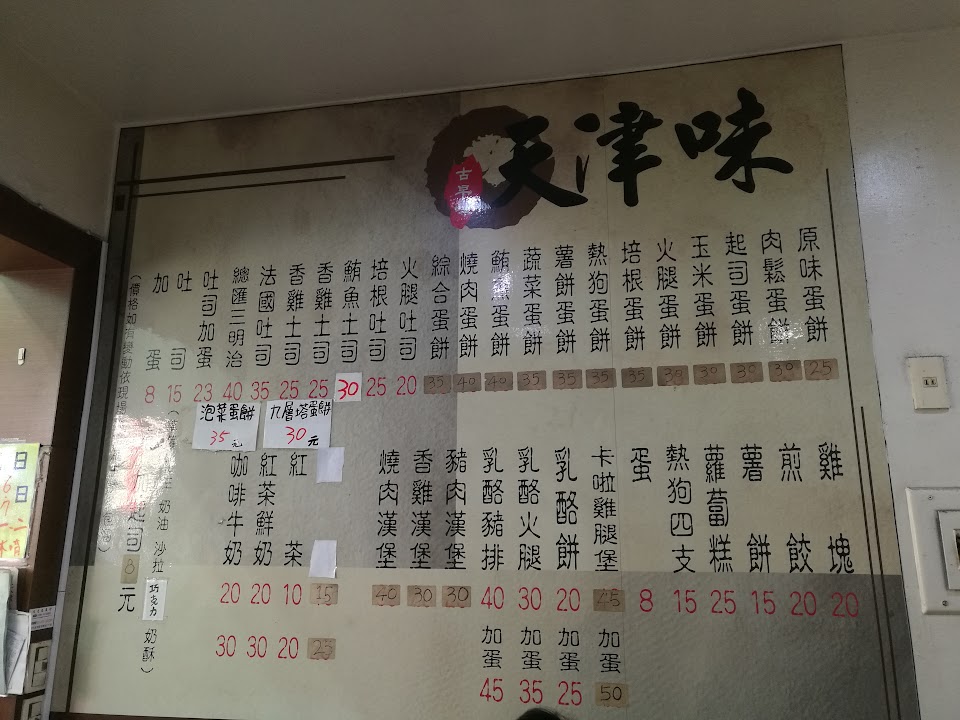 天津味
古早
原味蛋餅 25
肉鬆蛋餅 30
起司蛋餅 30
玉米蛋餅 30
火腿蛋餅 30
培根蛋餅 35
熱狗蛋餅 35
薯餅蛋餅 35
蔬菜蛋餅 35
鮪魚蛋餅 40
燒肉蛋餅 40
綜合蛋餅 35
火腿吐司 20
培根吐司 25
鮪魚土司 30
香雞土司 25
香雞土司 25
法國吐司 35
總匯三明治 40
吐司加蛋 23
吐司 15
加蛋 8
九層塔蛋餅 30元
泡菜蛋餅 35元
雞塊 20
煎餃 20
薯餅 15
蘿蔔糕 25
熱狗四支 15
蛋 8
卡啦雞腿堡 45 加蛋 50
乳酪餅 20 加蛋 25
乳酪火腿 30 加蛋 35
乳酪豬排 40 加蛋 45
豬肉漢堡 30
香雞漢堡 30
燒肉漢堡 40
15 25
紅茶 10 20
紅茶鮮奶 20 30
咖啡牛奶 20 30
奶油 沙拉 巧克力 奶酥)
起司 8 元
(價格如有變動依現場
日
日